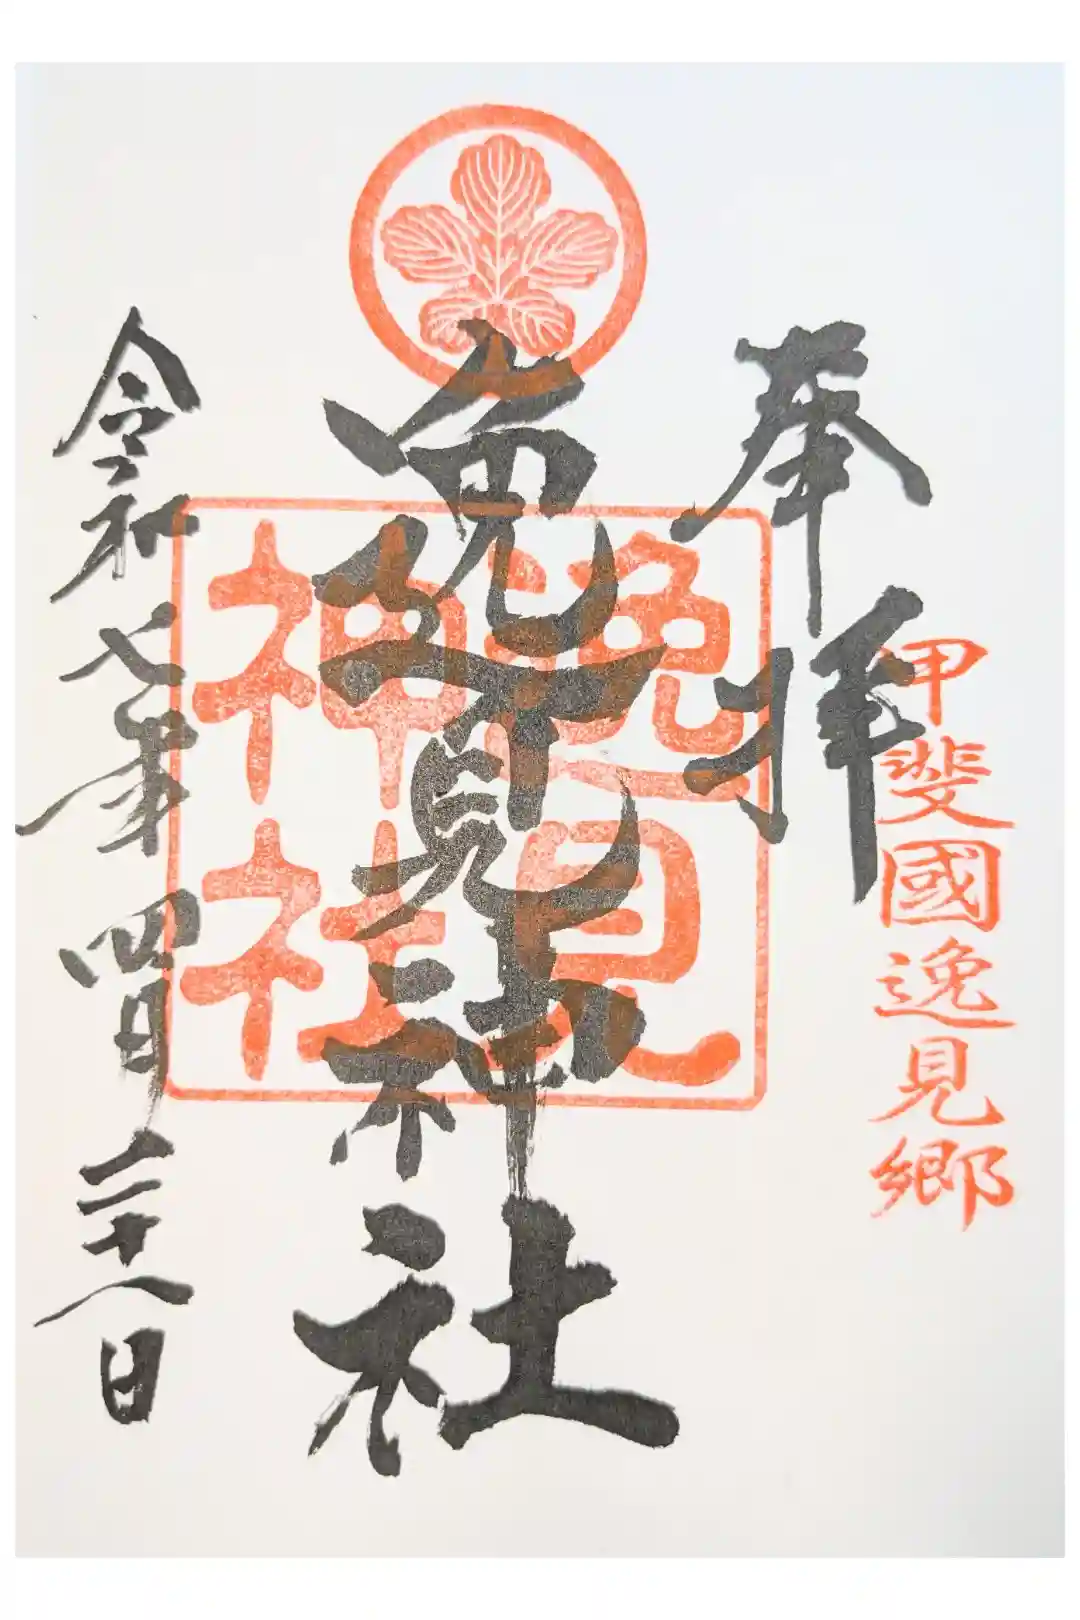 奉拝
甲斐國逸見郷
逸見神社
逸見
神社
令和七年四月二十八日